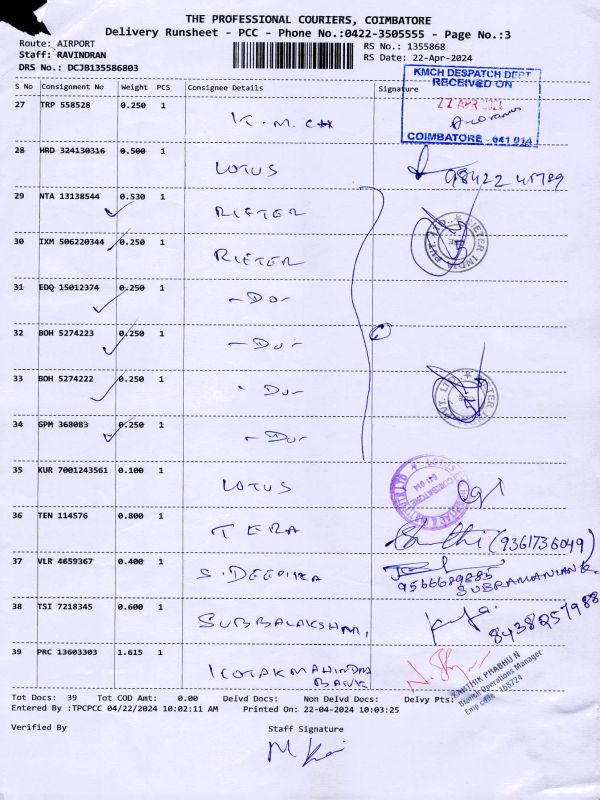 THE PROFESSIONAL COURIERS, COIMBATORE
Delivery Runsheet - PCC - Phone No.:0422-3505555 - Page No.:3
Route: AIRPORT RS No.: 1355868
Staff: RAVINDRAN RS Date: 22-Apr-2024
DRS No.: DCJB135586803
KMCH DESPATCH DEPT
RECEIVED ON
22 APR 2024
COIMBATORE - 641 014
S No Consignment No Weight PCS Consignee Details Signature
27 TRP 558528 0.250 1 K.M.CH
28 HRD 324130316 0.500 1 LOTUS
29 NTA 13138544 0.530 1 RIETER
30 IXM 506220344 0.250 1 RIETER
RIETER INDIA PVT. LTD.
31 EDQ 15012374 0.250 1 -Do-
32 BOH 5274223 0.250 1 -Do-
33 BOH 5274222 0.250 1 -Do-
PVT. LTD.
34 GPM 368083 0.250 1 -Do-
35 KUR 7001243561 0.100 1 LOTUS
LOTUS
COIMBATORE
641 014
36 TEN 114576 0.800 1 TERA (9361736049)
37 VLR 4659367 0.400 1 S.DEEPIKA
SUBRAMANIAN
38 TSI 7218345 0.600 1 SUBBALAKSHMI, 8438257988
39 PRC 13603303 1.615 1 KOTAK MAHINDRA
BANK
KARTHIK PRABHU N
Operations Manager
Emp Code - 168724
Tot Docs: 39 Tot COD Amt: 0.00 Delvd Docs: Non Delvd Docs: Delvy Pts:
Entered By :TPCPCC 04/22/2024 10:02:11 AM Printed On: 22-04-2024 10:03:25
Verified By Staff Signature